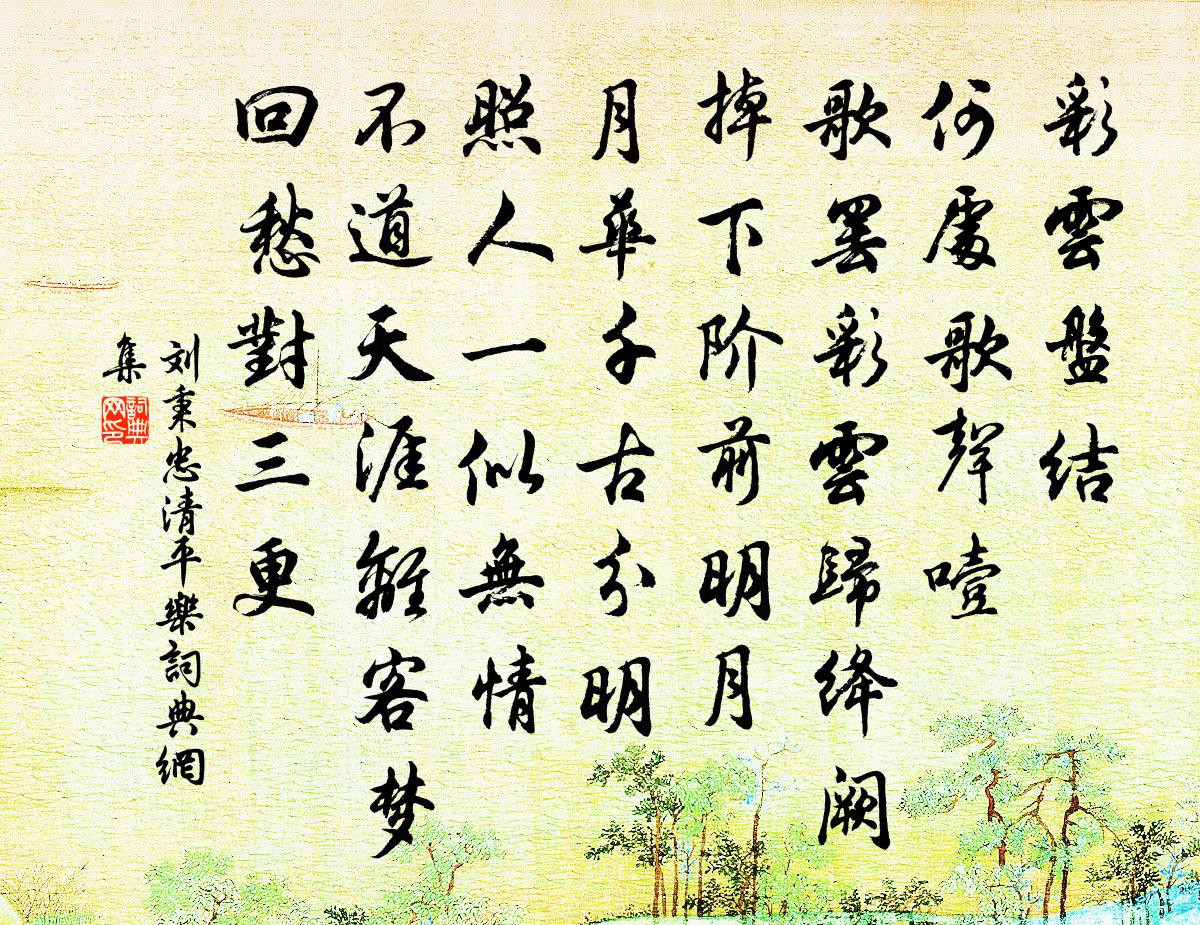 彩雲盤结
何處歌聲噎
歌罢彩雲歸绛阙
掉下阶前明月
月華千古分明
照人一似無情
不道天涯離客梦
回愁對三更
刘秉忠清平樂詞典網
集
詞典
网印